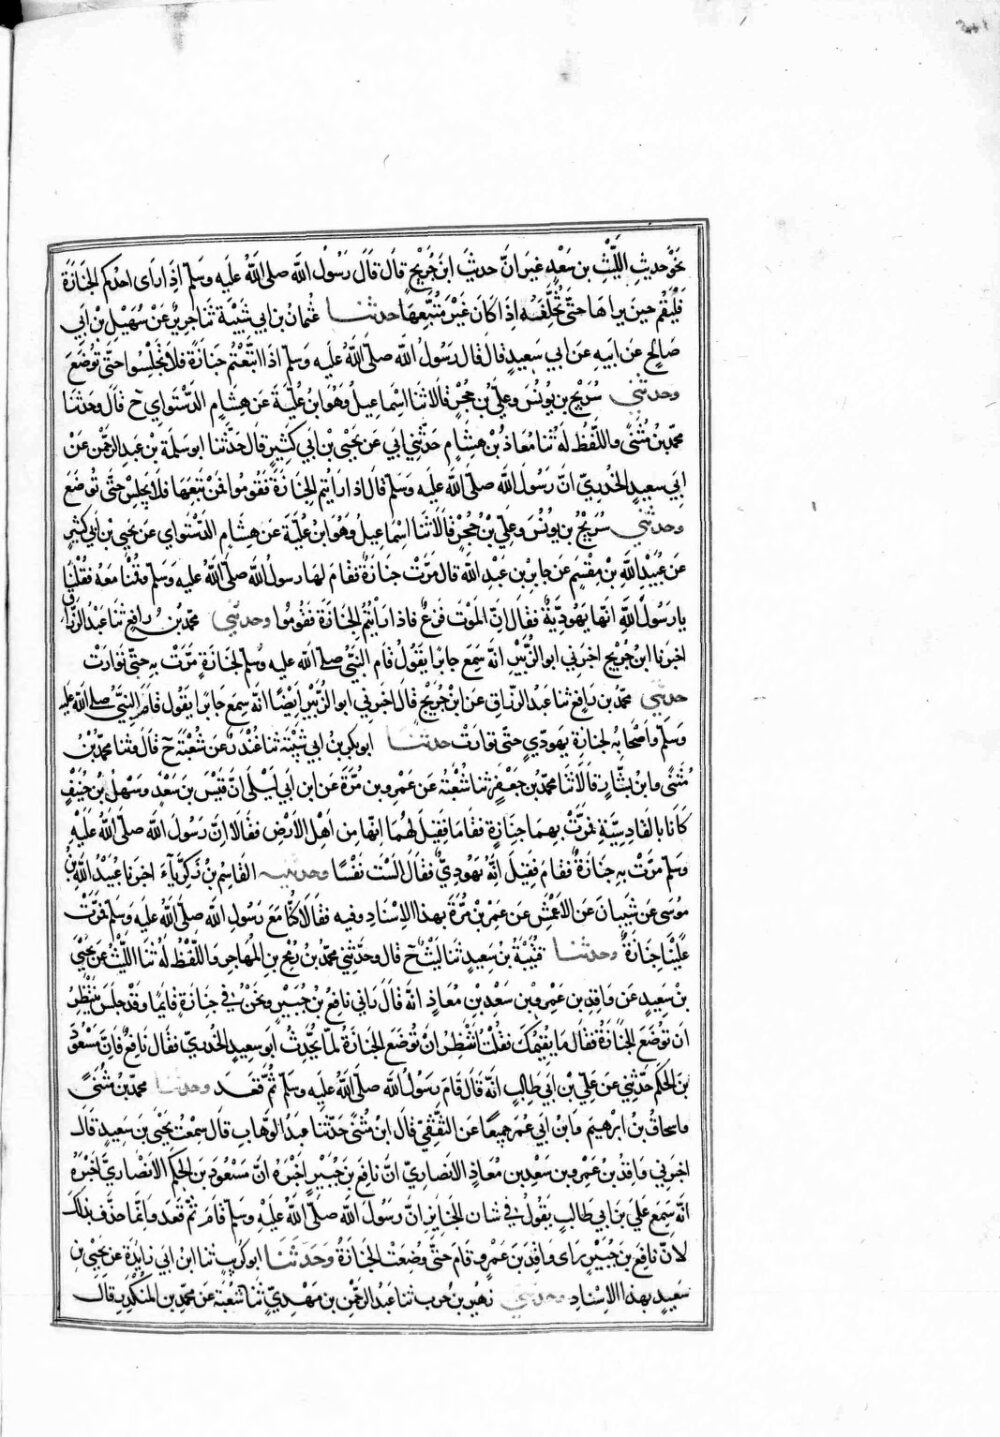 نَحْوَ حديثِ اللَّيْثِ بن سَعْدٍ غيرَ انّ حديثَ ابن جُرَيْجٍ قال قالَ رَسُوْل اللّه صلى اللّهُ عليه وسَلم اذَا رَاى احدكم الجنازة
فَلْيَقُم حينَ يراهَا حتّى تُخَلِّفَهُ اِذا كان غَيْرَ مُتَّبِعِهَا حدثنا عثمان بن ابي شَيْبَةَ ثنا جريرٌ عَن سُهَيْلِ بْنِ ابي
صَالحٍ عَن ابيهِ عَن ابي سَعيدٍ قال قال رَسُولُ اللّه صلّى اللّهُ عليه وَسَلّم اذا اتَّبَعْتُم جنازَةً فلا تَجْلِسُوا حتّى تُوضَعَ
وحدثني سُرَيْجُ بن يُونُسَ وعَليُّ بنُ حُجْرٍ قالا ثنا اسْماعِيلُ وهُوَ ابْنُ عُلَيَّةَ عَن هِشامٍ الدَّسْتُواي ح قال وحدثنا
محمّد بنُ مُثنَّى واللَّفظُ لَهُ ثنا مُعَاذُ بْنُ هِشَامٍ حدّثني ابي عَن يحيى بْنِ ابي كَثيرٍ قالَ حدَّثنا ابو سَلمةَ بْن عَبدِ الرَّحْمنِ عَنْ
ابي سعيدٍ الخُدريّ انّ رَسُولَ اللّه صلى اللّهُ عليه وَسَلّم قَال اذا رَاَيْتم الجنازَةَ فَقُومُوا فَمَن تَبِعَها فلا يجلِسْ حتّى تُوضَعَ
وحدثني سُرَيْجُ بن يُونُسَ وعَلِيُّ بْنُ حُجْرٍ قالا ثنا اسْماعيلُ وهُوَ ابْنُ عُلَيَّةَ عَن هِشامٍ الدَّسْتُواي عَن يحيى بْنِ ابي كثيرٍ
عَن عُبَيْدِ اللّهِ بْنِ مِقْسَمٍ عَن جابر بن عَبْدِ اللّه قال مَرَّتْ جنازةٌ فقَامَ لهَا رسولُ اللّه صَلّى اللّهُ عليه وَسَلّم وقُمْنا مَعَهُ فقُلْنا
يا رَسُولَ اللّهِ انّها يَهُوديَّةٌ فقالَ انّ المَوْتَ فَزَعٌ فاذا رَاَيْتُم الجنازَةَ فَقُومُوا وحدثني محمّد بْنُ رافعٍ ثنا عَبْدُ الرّزّاق
اخبرنا ابنُ جُرَيْجٍ اخبَرني ابو الزُّبَيْرِ انّه سَمِعَ جابرًا يَقُولُ قام النَّبيُّ صلى اللّه عليه وسَلم لجنازَةٍ مَرَّتْ بهِ حتّى توَارَتْ
حدثني محمّد بن رَافِعٍ ثنا عَبدُ الرَّزاق عَن ابْنِ جُرَيْجٍ قالَ اخبرني ابو الزُّبَيْرِ ايْضًا انّه سَمِعَ جَابرًا يَقُول قَام النَّبيُّ صلى اللّه عليه
وَسَلّم واصْحابُه لجنازَةِ يهوديٍّ حتّى توَارَتْ حدثنا ابو بكر بن ابي شَيْبَةَ ثنا غُنْدَرٌ عَن شُعْبَةَ ح قالَ وثنا محمّد بْنُ
مُثَنَّى وابن بشَّارٍ قالا ثنا محمّد بن جَعْفَرٍ ثنا شُعْبَةُ عَن عَمْرِو بن مُرَّةَ عَن ابن ابي لَيْلَى انّ قَيْسَ بن سَعْدٍ وسَهْلَ بْنَ حُنَيْفٍ
كانَا بالقادِسيَّةِ فَمَرَّتْ بهِمَا جنازةٌ فقَامَا فقِيلَ لهُمَا انّها مِن اهْلِ الاَرْضِ فقَالا انّ رَسُولَ اللّه صلّى اللّه عَلَيْهِ
وسَلّم مَرَّتْ بهِ جنازةٌ فقَامَ فقِيْلَ انَّهُ يَهُوديٌّ فقَالَ الَسْتْ نَفْسًا وحدثنيه القَاسِمُ بْنُ زكَريّاءَ اخبَرنا عُبَيْدُ اللّهِ بْنُ
مُوسَى عَن شَيبانَ عَن الاَعْمَشِ عَن عَمْرِو بْنِ مُرَّةَ بهذا الاِسْنادِ وفيهِ فقَالا كُنّا مَعَ رَسُولِ اللّه صَلّى اللّهُ عليه وَسَلّم فَمَرَّتْ
عَلَيْنا جَنازَةٌ وحدثنا قُتَيْبَةُ بْنُ سَعِيدٍ ثنا لَيْثٌ ح قال وحدّثني محمّد بن رُمْحِ بنِ المُهاجِرِ واللّفْظُ لَهُ ثنا اللّيْثُ عَن يحيى
بْنِ سَعِيدٍ عَن واقدِ بنِ عَمْرِو بْنِ سَعْدِ بْنِ مُعَاذٍ انّه قالَ رَاني نافعُ بنُ جُبَيْرٍ ونَحْنُ في جنازَةٍ قايمًا وقَدْ جلَسَ يَنْتَظِرُ
ان تُوضَعَ الجنازَةُ فقالَ مَا يُقيمُكَ فقُلْتُ انْتَظِرُ انْ تُوضَعَ الجنازَةُ لمَا يُحدِّثُ ابو سعيدٍ الخدريّ فقالَ نافعٌ فانّ مَسْعُودَ
بنَ الحكَم حدّثني عَن عَلِيّ بْنِ ابي طَالبٍ انّه قالَ قَامَ رَسُولُ اللّه صَلّى اللّهُ عليه وَسَلّم ثُمّ قعَد وحدثنا محمّد بْنُ مُثنَّى
واسحاقُ بْن ابرهيمَ وابن ابي عُمَر جميعًا عَن الثَّقَفِيِّ قال ابْنُ مُثَنَّى حَدّثنا عبدُ الوَهّابِ قال سَمِعْتُ يَحْيى بنَ سَعِيدٍ قال
اخبَرني واقدُ بْنُ عَمْرِو بن سَعْدِ بن مُعَاذٍ الانصَاريّ انّ نافعَ بنَ جُبَيْرٍ اخْبَرَهُ انّ مَسْعُودَ بنَ الحكَمِ الانْصَاريَّ اخْبَرَهُ
انَّهُ سَمِعَ عَليَّ بنَ ابي طَالبٍ يَقُولُ في شان الجنَايز انّ رَسُولَ اللّه صَلّى اللّهُ عَلَيْهِ وَسَلّم قامَ ثُمّ قَعَدَ وانّما حدّثَ بذلِكَ
لانّ نافعَ بنَ جُبَيْرٍ رَاى واقدَ بنَ عَمْرٍو قامَ حتّى وُضِعَتْ الجَنازَةُ وحَدَّثَنَا ابو كُرَيْبٍ ثنا ابْنُ ابي زايدَةَ عَن يحيى بنِ
سَعِيدٍ بهذا الاِسْنادِ وحدثني زهَيْرُ بنُ حربٍ ثنا عبدُ الرّحْمنِ بن مَهْديٍّ ثنا شُعْبَةُ عَن محمّد بن المُنْكَدِرِ قال